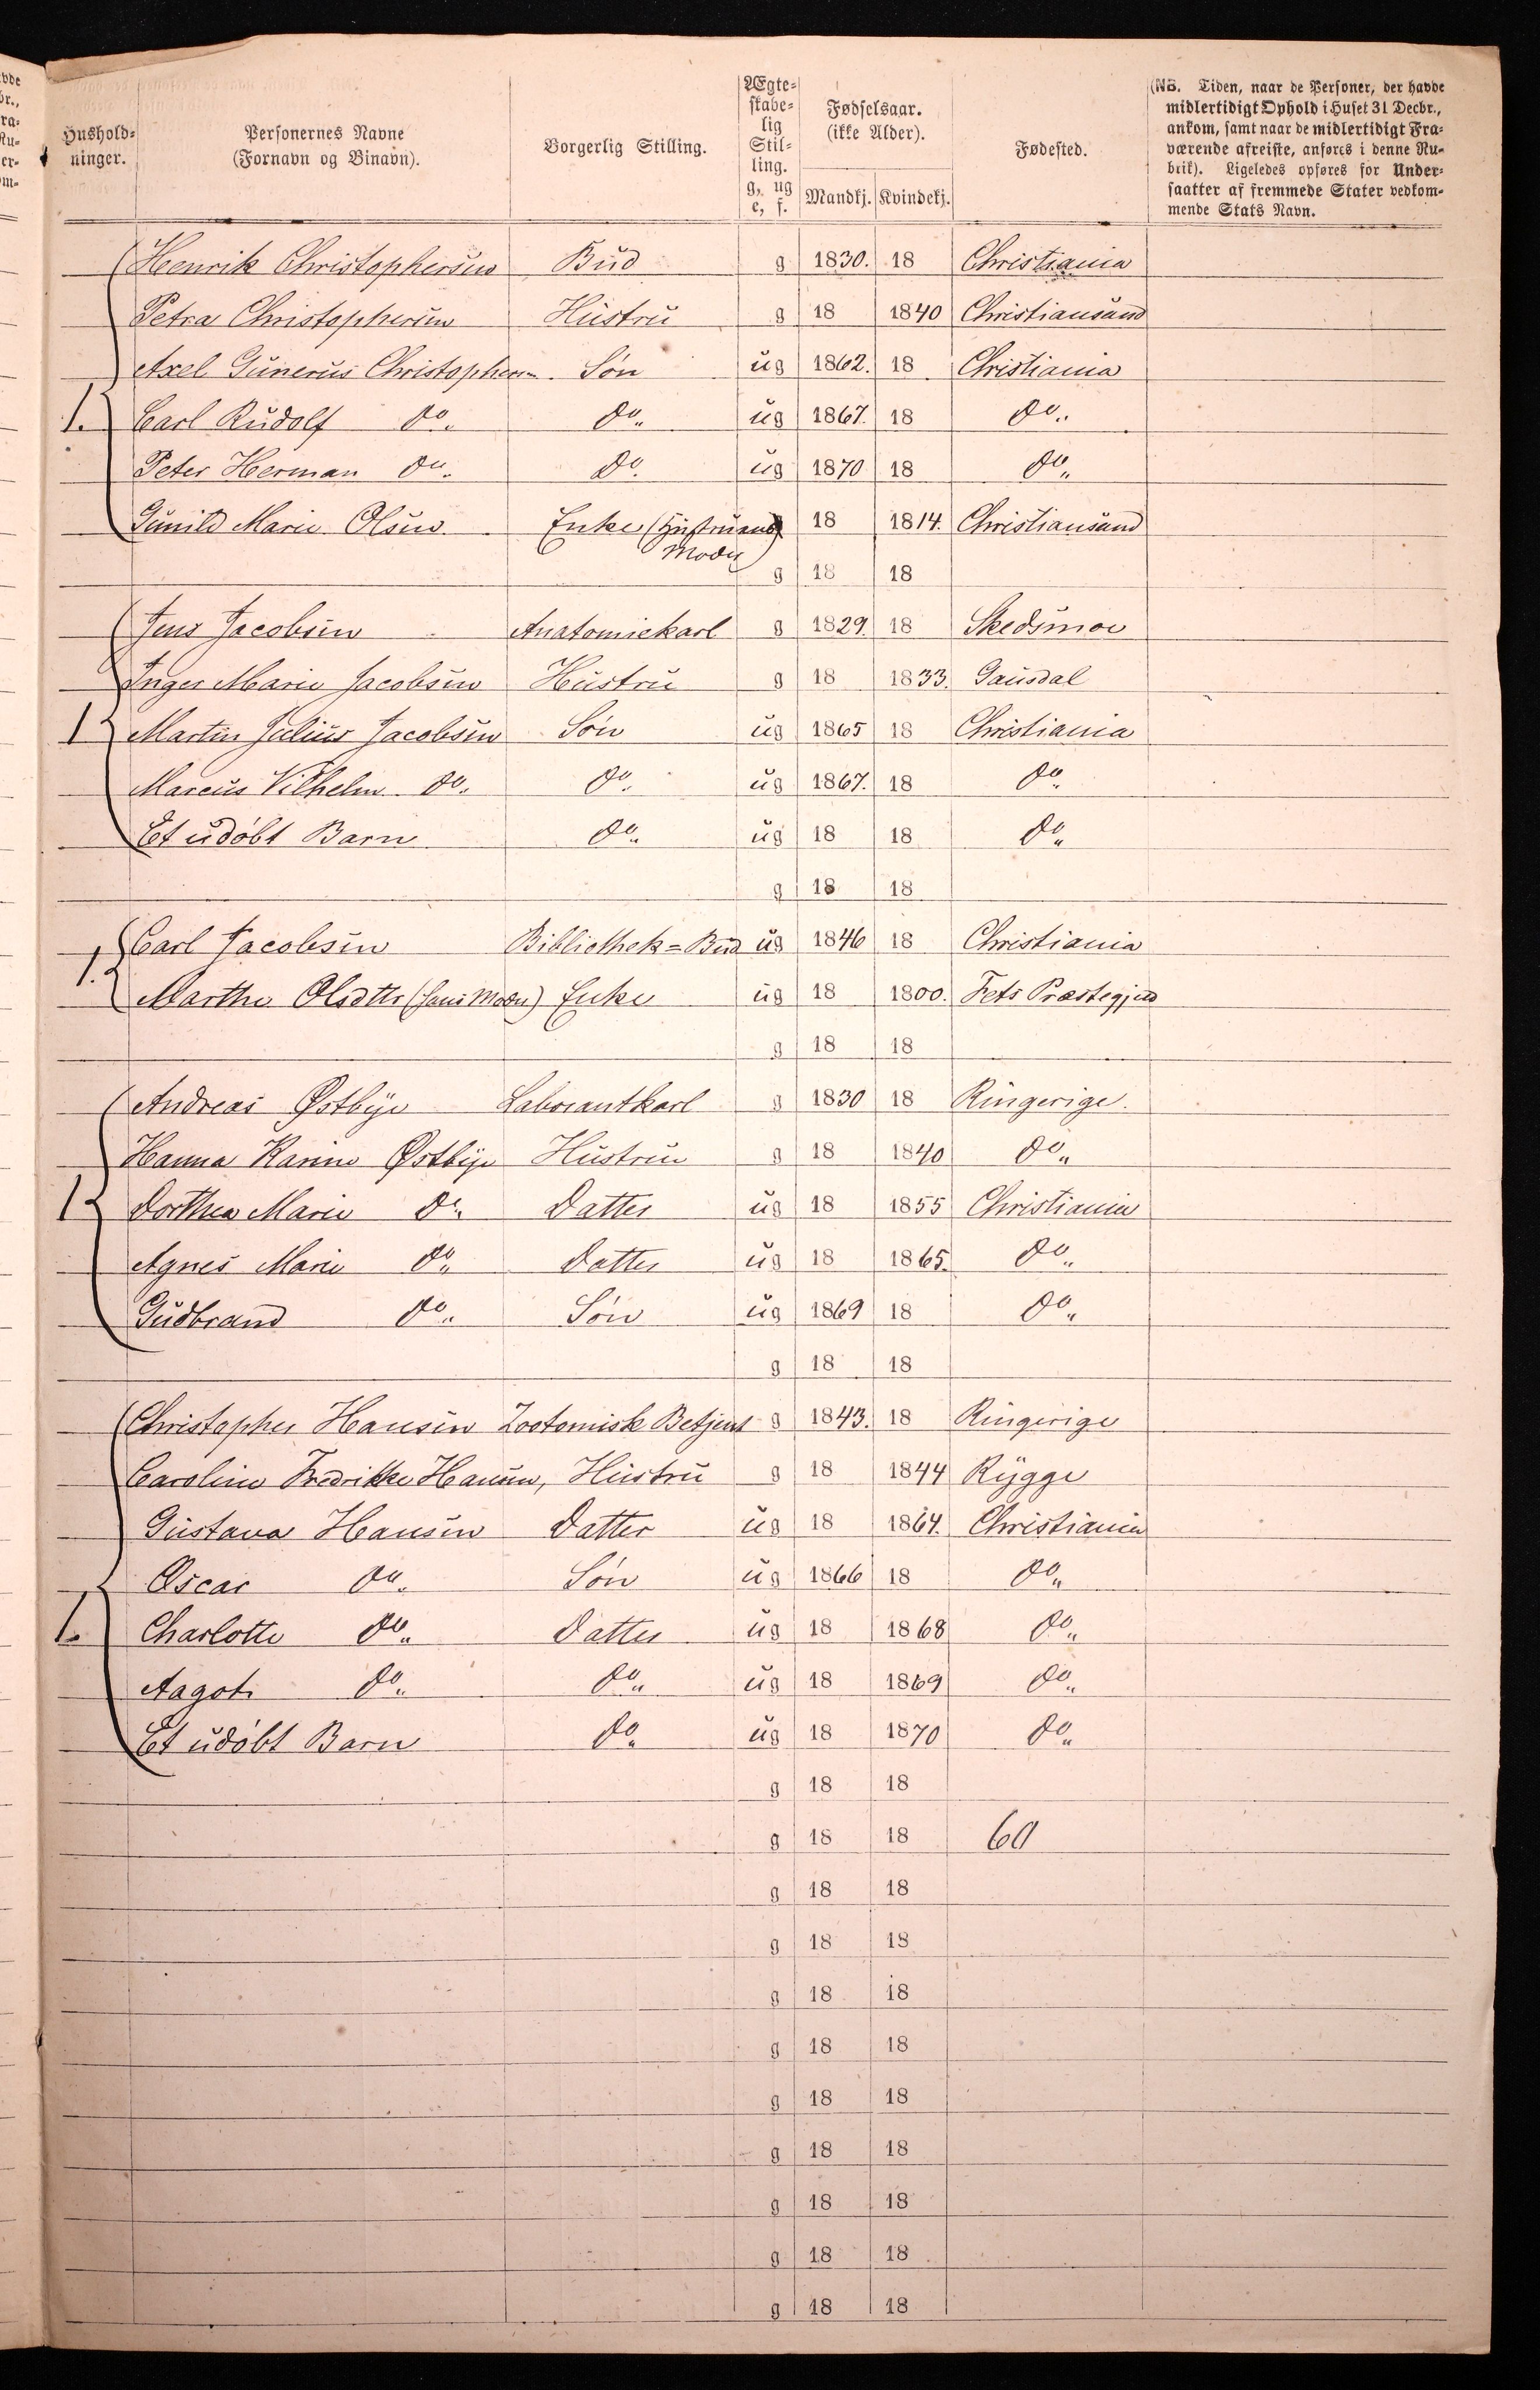 Hushold-
ninger.
Personernes Navne
(Fornavn og Binavn).
Borgerlig Stilling.
Ægte-
skabe-
lig
Stil-
ling.
g, ug
e, f.
Fødselsaar.
(ikke Alder).
Mandkj. Kvindekj.
Fødested.
(NB. Tiden, naar de Personer, der havde
midlertidigt Ophold i Huset 31 Decbr.,
ankom, samt naar de midlertidigt Fra-
værende afreiste, anføres i denne Ru-
brik). Ligeledes opføres for Under-
saatter af fremmede Stater vedkom-
mende Stats Navn.
Henrik Christophersen Bud g 1830. 18 Christiania
Petra Christophersen Hustru g 18 1840 Christiansand
Axel Gunerus Christophersen Søn ug 1862. 18 Christiania
1. Carl Rudolf do. do. ug 1867. 18 do.
Peter Herman do. do. ug 1870 18 do.
Gunild Marie Olsen Enke (Hustruens 18 1814. Christiansand
Moder)
g 18 18
Jens Jacobsen Anatomiekarl g 1829. 18 Skedsmoe
Inger Marie Jacobsen Hustru g 18 1833. Gausdal
1 Martin Julius Jacobsen Søn ug 1865 18 Christiania
Marcus Vilhelm do. do. ug 1867. 18 do.
Et udøbt Barn do. ug 18 18 do.
g 18 18
1. Carl Jacobsen Bibliothek=Bud ug 1846 18 Christiania
Marthe Olsdttr (hans Moder) Enke ug 18 1800. Fets Præstegjeld
g 18 18
Andreas Østbye Laborantkarl g 1830 18 Ringerige.
Hanna Karine Østbye Hustru g 18 1840 do.
1 Dorthea Marie do. Datter ug 18 1855 Christiania
Agnes Marie do. Datter ug 18 1865. do.
Gudbrand do. Søn ug 1869 18 do.
g 18 18
Christopher Hansen Zootomisk Betjent g 1843. 18 Ringerige
Caroline Fredrikke Hansen, Hustru g 18 1844 Rygge
Gustava Hansen Datter ug 18 1864. Christiania
Oscar do. Søn ug 1866 18 do.
1. Charlotte do. Datter ug 18 1868 do.
Aagot do. do. ug 18 1869 do.
Et udøbt Barn do. ug 18 1870 do.
g 18 18
g 18 18 60
g 18 18
g 18 18
g 18 18
g 18 18
g 18 18
g 18 18
g 18 18
g 18 18
g 18 18